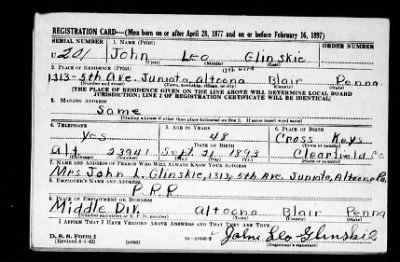 REGISTRATION CARD—(Men born on or after April 28, 1877 and on or before February 16, 1897)
SERIAL NUMBER 1. NAME (Print) ORDER NUMBER
U 201 John Leo Glinskie
(First) (Middle) (Last)
2. PLACE OF RESIDENCE (Print) 13th Ward
1313-5th Ave. Juniata, Altoona Blair Penna.
(Number and street) (Town, township, village, or city) (County) (State)
[THE PLACE OF RESIDENCE GIVEN ON THE LINE ABOVE WILL DETERMINE LOCAL BOARD
JURISDICTION; LINE 2 OF REGISTRATION CERTIFICATE WILL BE IDENTICAL]
3. MAILING ADDRESS
Same
[Mailing address if other than place indicated on line 2. If same insert word same]
4. TELEPHONE 5. AGE IN YEARS 6. PLACE OF BIRTH
Yes 48 Cross Keys
DATE OF BIRTH
Alt 23941 Sept. 21 1893 Clearfield Co
7. NAME AND ADDRESS OF PERSON WHO WILL ALWAYS KNOW YOUR ADDRESS
Mrs John L. Glinskie, 1313-5th Ave. Juniata, Altoona Pa.
8. EMPLOYER'S NAME AND ADDRESS
P.R.R
9. PLACE OF EMPLOYMENT OR BUSINESS
Middle Div. Altoona Blair Penna
(Number and street or R. F. D. number) (Town) (County) (State)
I AFFIRM THAT I HAVE VERIFIED ABOVE ANSWERS AND THAT THEY ARE TRUE.
D. S. S. Form 1
(Revised 4-1-42) (over) John Leo Glinskie
(Registrant's signature)